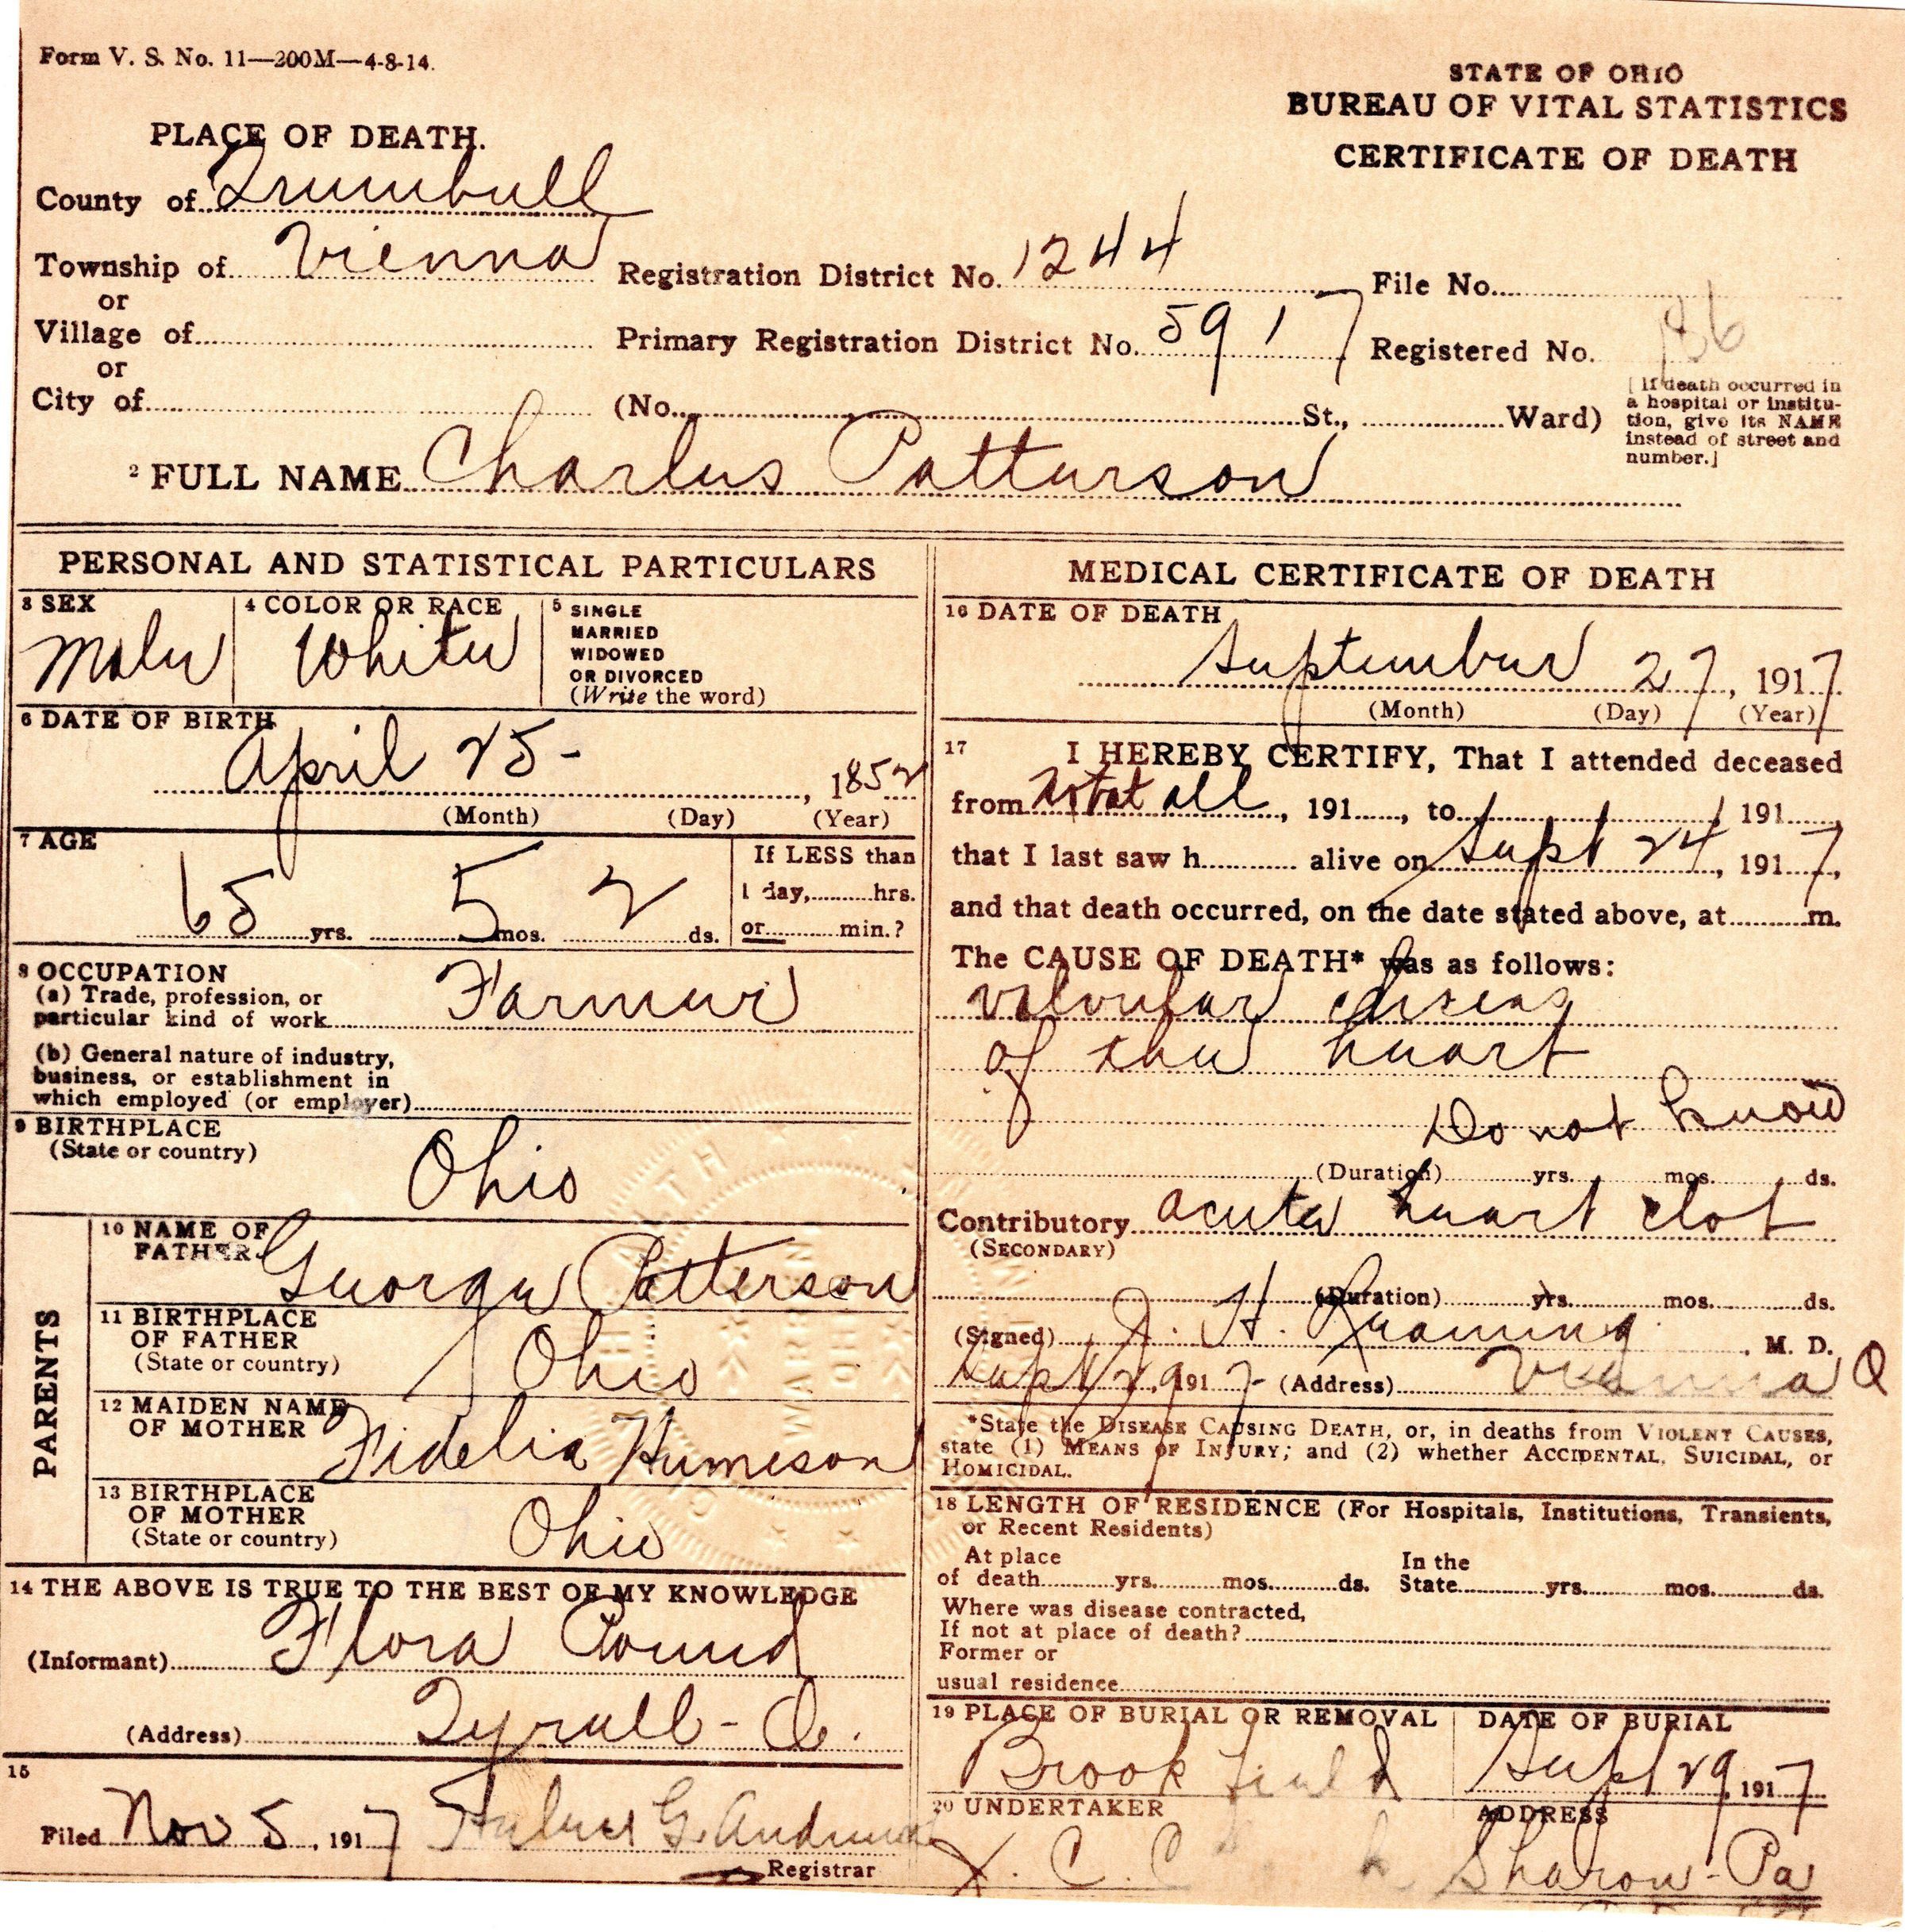 Form V. S. No. 11—200M—4-8-14.
STATE OF OHIO
BUREAU OF VITAL STATISTICS
CERTIFICATE OF DEATH
PLACE OF DEATH.
County of Trumbull
Township of Vienna Registration District No. 1244 File No.
or
Village of Primary Registration District No. 5917 Registered No. 86
or
City of (No. St., Ward)
[If death occurred in
a hospital or institu-
tion, give its NAME
instead of street and
number.]
2 FULL NAME Charles Patterson
PERSONAL AND STATISTICAL PARTICULARS
3 SEX
Male
4 COLOR OR RACE
White
5 SINGLE
MARRIED
WIDOWED
OR DIVORCED
(Write the word)
6 DATE OF BIRTH
April 25- , 1852
(Month) (Day) (Year)
7 AGE
65 yrs. 5 mos. 2 ds.
If LESS than
1 day, hrs.
or min.?
8 OCCUPATION
(a) Trade, profession, or
particular kind of work Farmer
(b) General nature of industry,
business, or establishment in
which employed (or employer)
9 BIRTHPLACE
(State or country)
Ohio
PARENTS
10 NAME OF
FATHER George Patterson
11 BIRTHPLACE
OF FATHER
(State or country) Ohio
12 MAIDEN NAME
OF MOTHER Fidelia Humeson
13 BIRTHPLACE
OF MOTHER
(State or country) Ohio
14 THE ABOVE IS TRUE TO THE BEST OF MY KNOWLEDGE
(Informant) Flora Pound
(Address) Tyrell - O.
15
Filed Nov 5, 1917 G. Andrews
Registrar
MEDICAL CERTIFICATE OF DEATH
16 DATE OF DEATH
September 27, 1917
(Month) (Day) (Year)
17 I HEREBY CERTIFY, That I attended deceased
from Not at all, 191 , to , 191 ,
that I last saw h alive on Sept 24, 1917,
and that death occurred, on the date stated above, at m.
The CAUSE OF DEATH* was as follows:
valvular diseas
of the heart
Do not know
(Duration) yrs. mos. ds.
Contributory acute heart clot
(SECONDARY)
(Duration) yrs. mos. ds.
(Signed) J. H. , M. D.
Sept 29, 1917 (Address) Vienna O
*State the DISEASE CAUSING DEATH, or, in deaths from VIOLENT CAUSES,
state (1) MEANS OF INJURY; and (2) whether ACCIDENTAL, SUICIDAL, or
HOMICIDAL.
18 LENGTH OF RESIDENCE (For Hospitals, Institutions, Transients,
or Recent Residents)
At place In the
of death yrs. mos. ds. State yrs. mos. ds.
Where was disease contracted,
If not at place of death?
Former or
usual residence
19 PLACE OF BURIAL OR REMOVAL
Brookfield
DATE OF BURIAL
Sept 29, 1917
20 UNDERTAKER
ADDRESS
Sharon - Pa